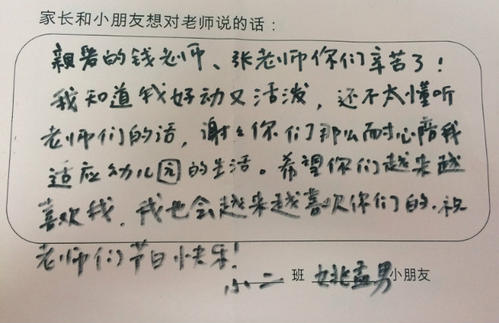 家长和小朋友想对老师说的话：
亲爱的钱老师、张老师你们辛苦了！
我知道我好动又活泼，还不太懂听
老师们的话，谢谢你们那么耐心陪我
适应幼儿园的生活。希望你们越来越
喜欢我，我也会越来越喜欢你们的.祝
老师们节日快乐！
小二 班 姚孟男小朋友